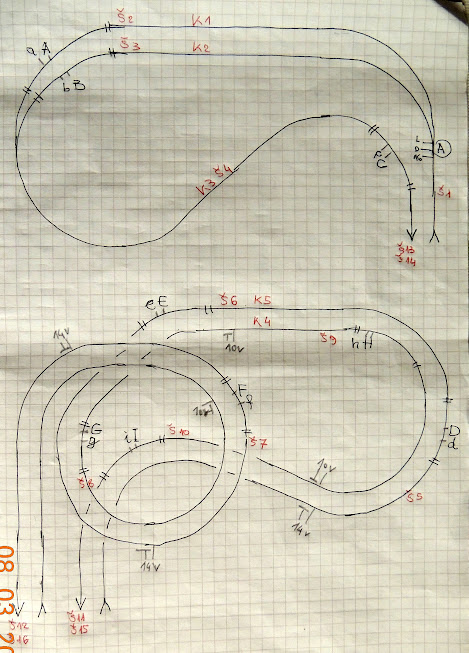 Š2
K1
Š3
K2
a A
b B
L
D
A
No
F C
K3 Š4
Š1
Š13
Š14
e E
Š6 K5
K4
Š9
h H
14V
10V
F f
10V
G g
i I
Š10
Š7
D d
10V
Š8
Š5
14V
14V
Š12
Š16
Š11
Š15
08 03 20